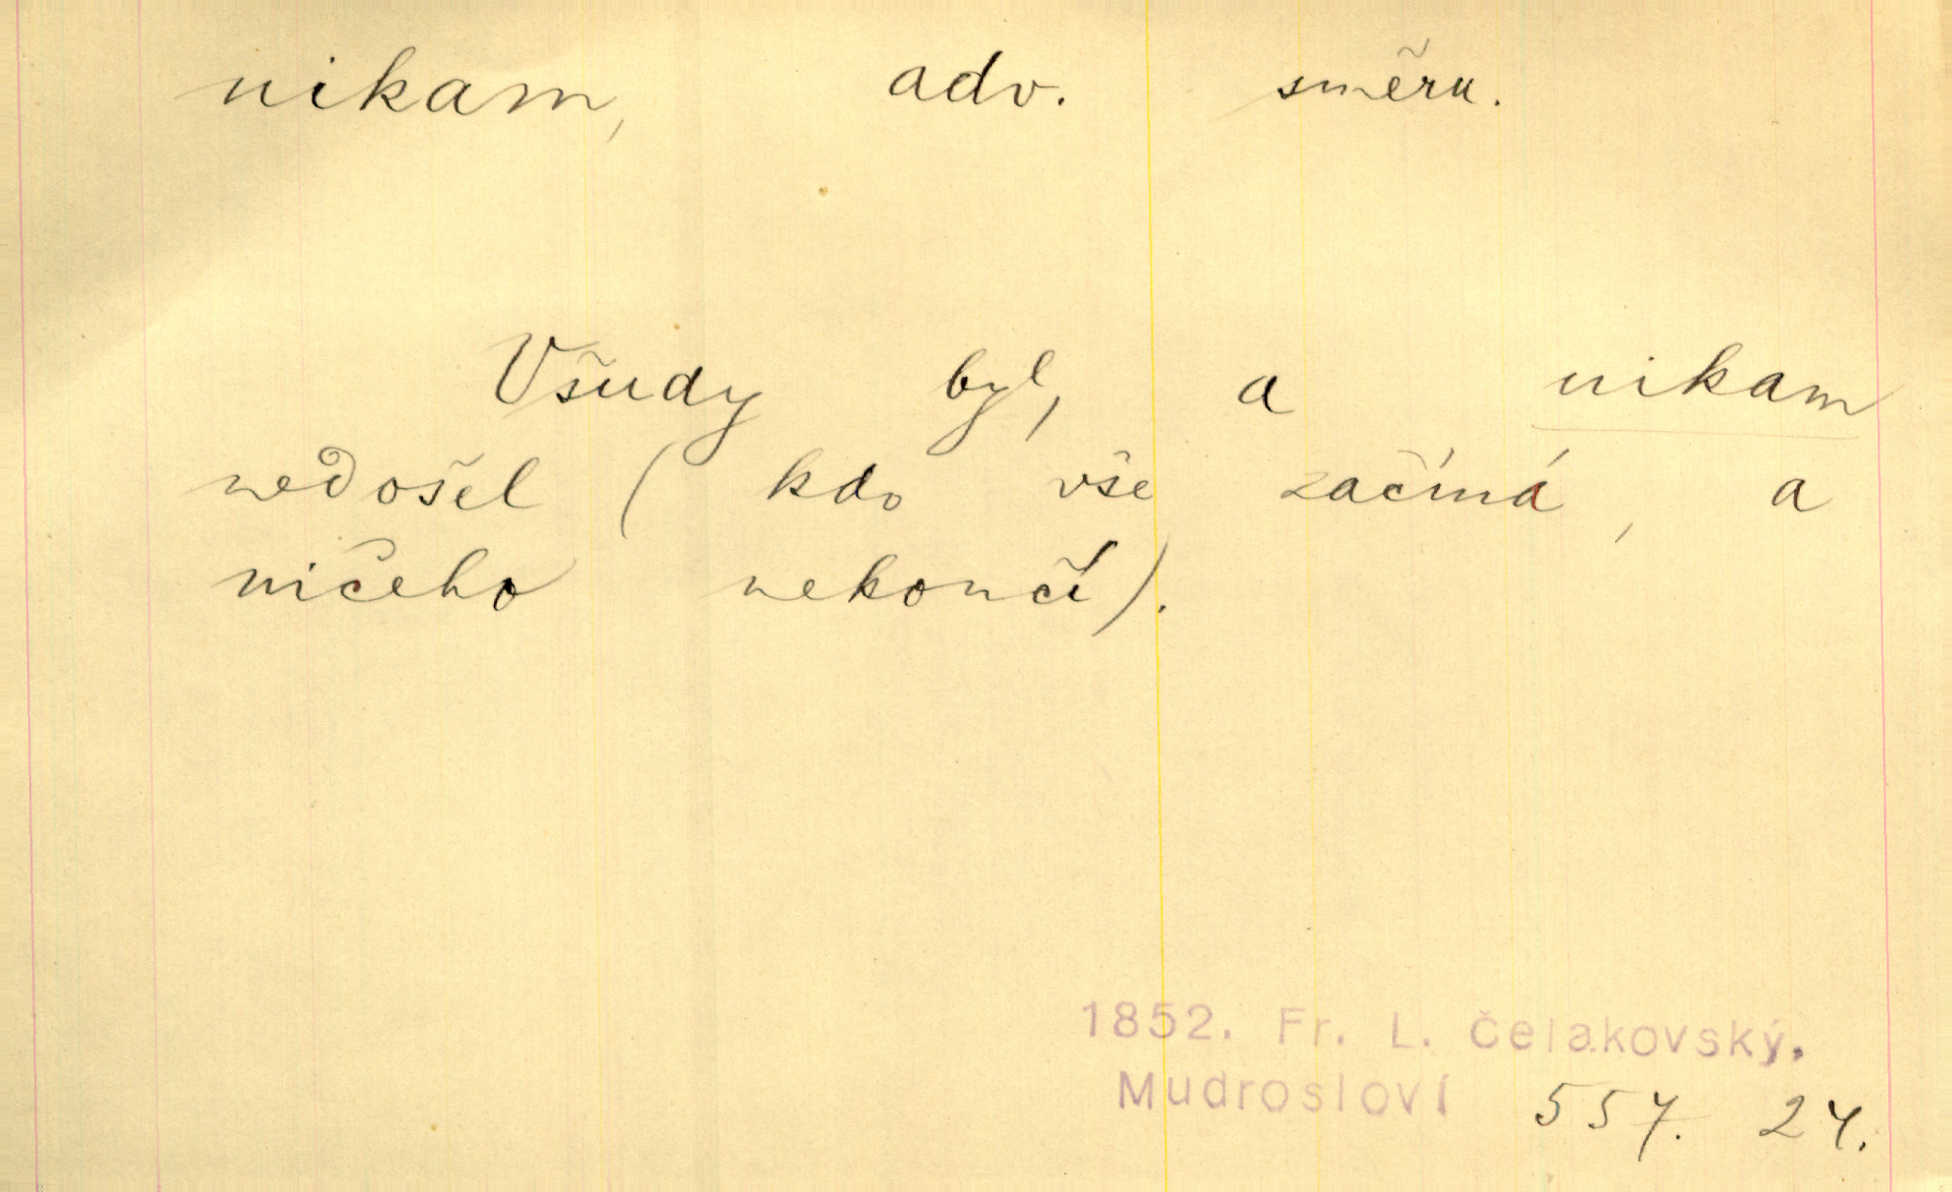 nikam, adv. směru.
Všudy byl, a nikam
nedošel (kdo vše začíná, a
ničeho nekončí).
1852. Fr. L. Čelakovský.
Mudrosloví 557. 24.